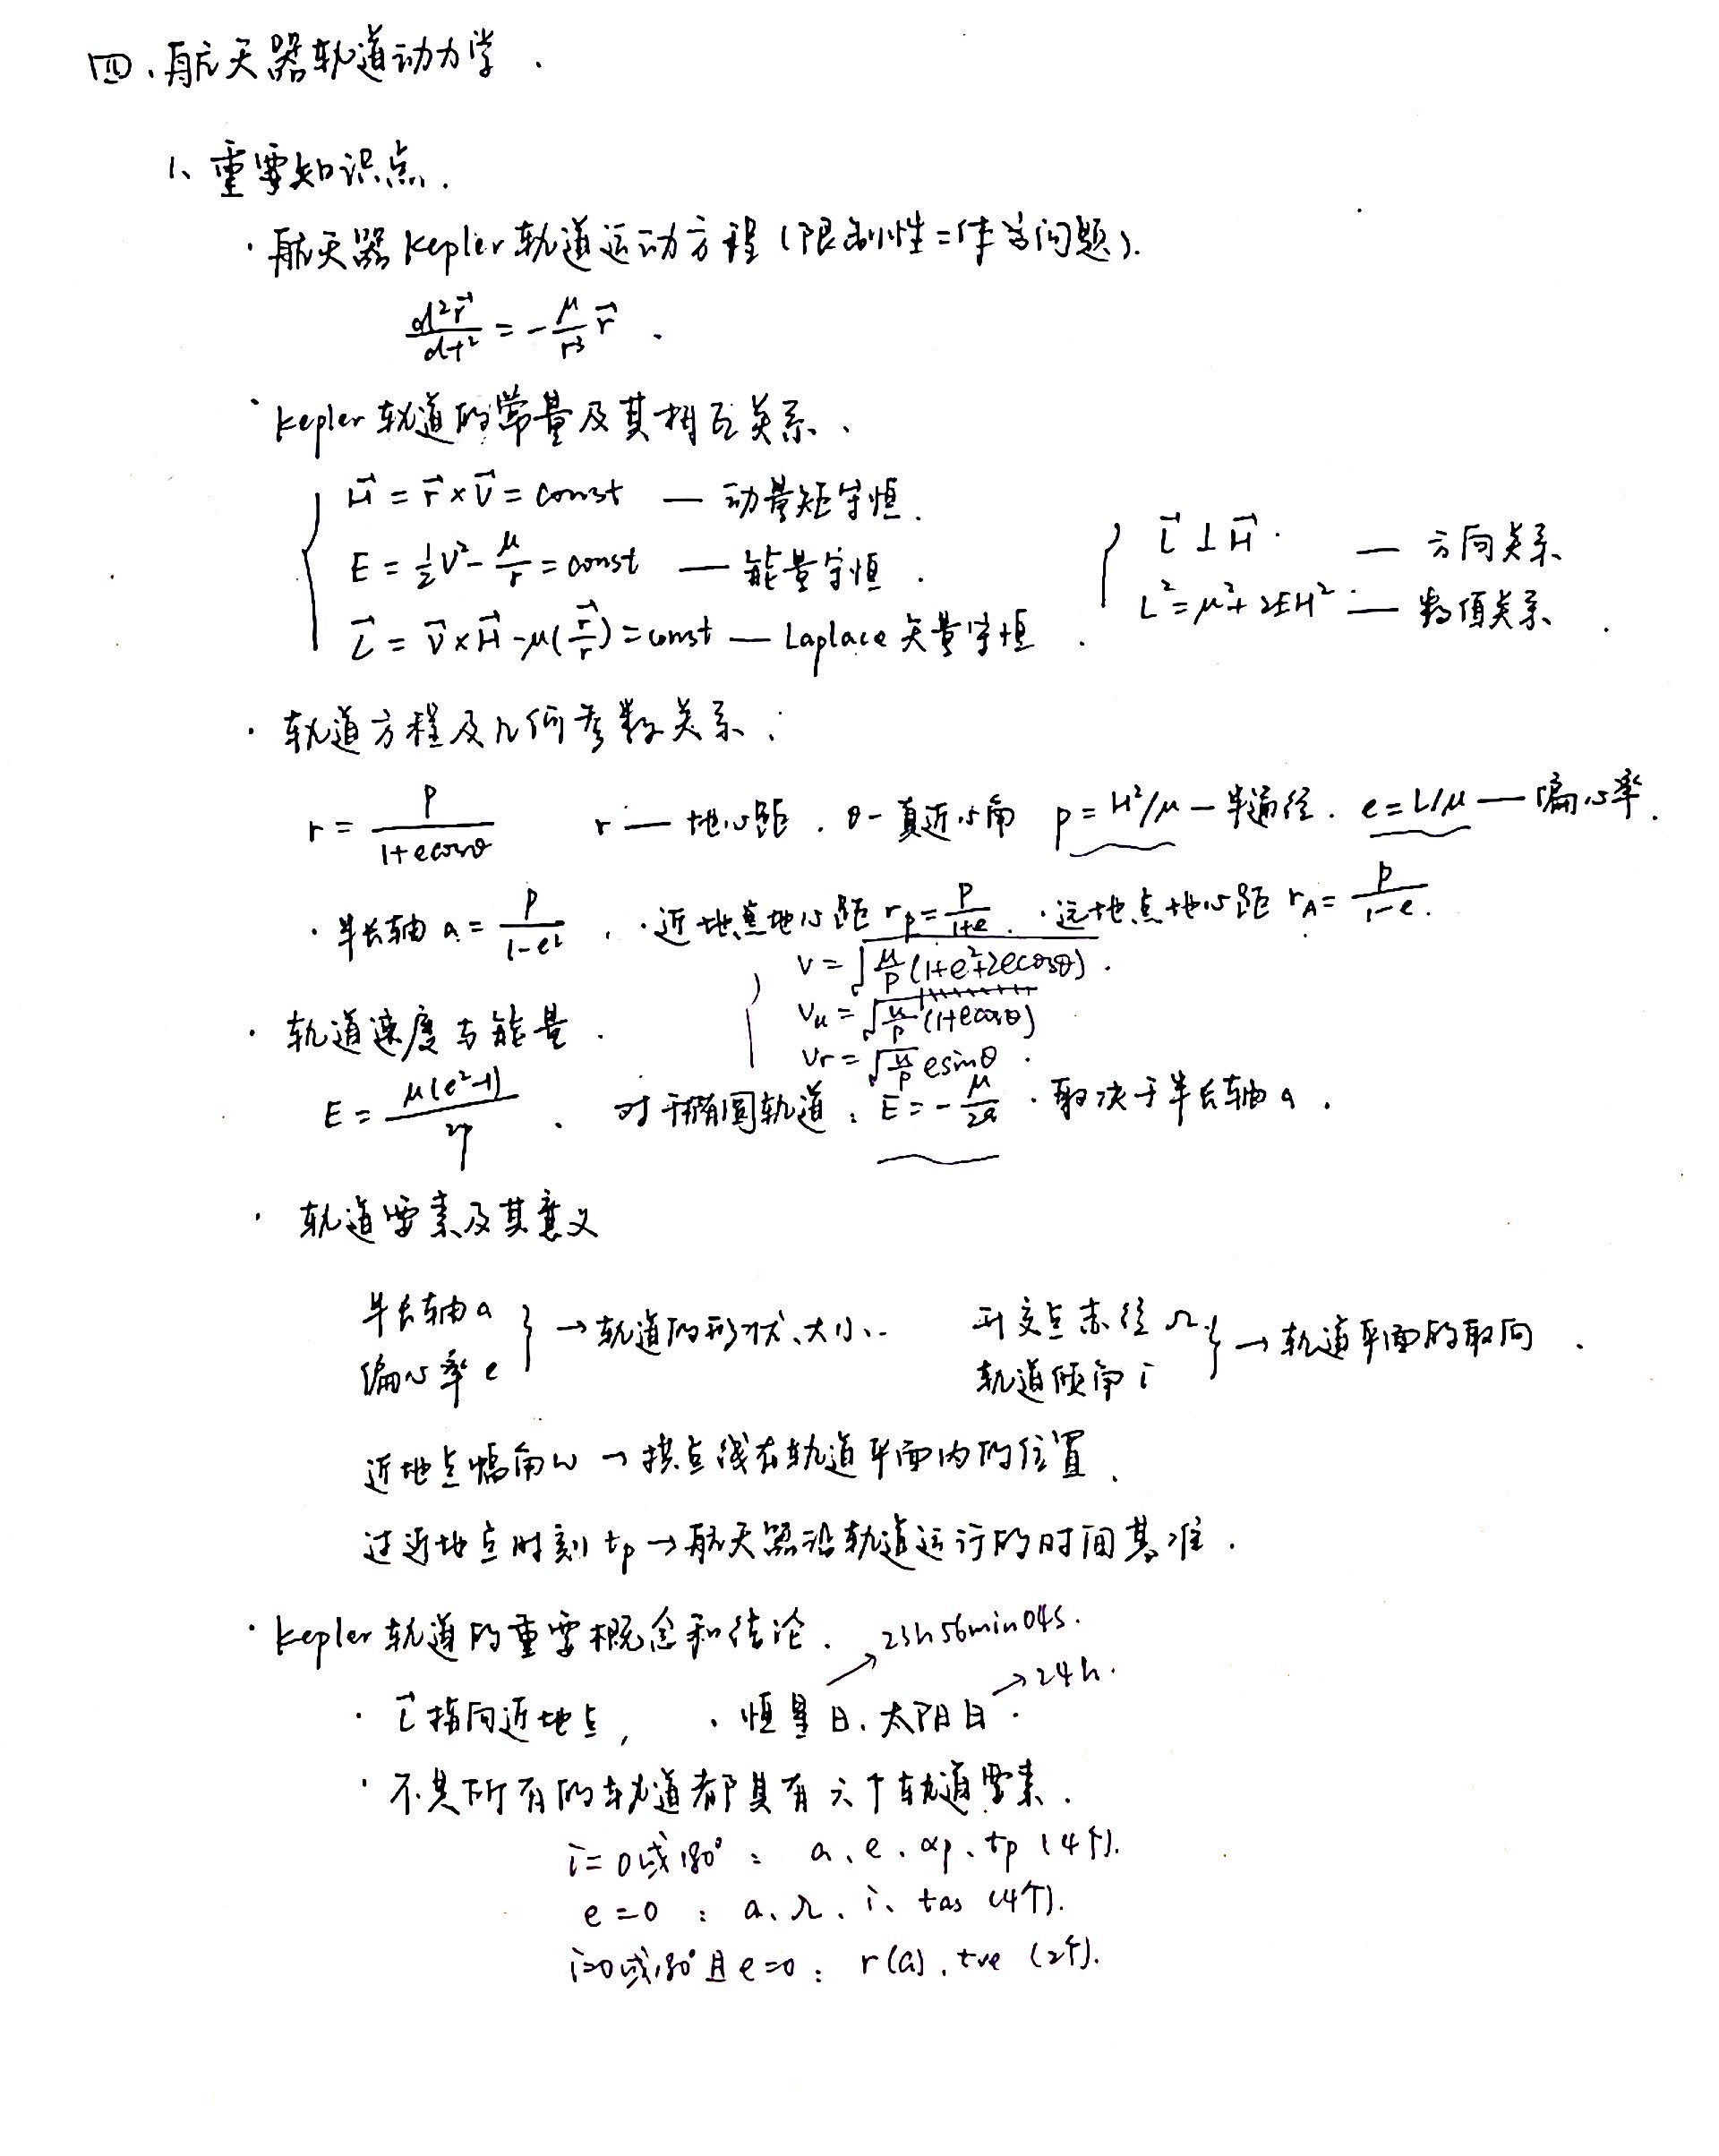 四、航天器轨道动力学.
1、重要知识点.
·航天器Kepler轨道运动方程(限制性二体学问题).
d²r⃗/dt² = -μ/r³ r⃗.
·Kepler轨道的常量及其相互关系.
H⃗ = r⃗×V⃗ = const — 动量矩守恒.
E = ½V² - μ/r = const — 能量守恒.
L⃗ = V⃗×H⃗ - μ(r⃗/r) = const — Laplace矢量守恒.
L⃗⊥H⃗. — 方向关系
L² = μ² + 2EH² — 数值关系.
·轨道方程及几何参数关系:
r = p/(1+ecosθ) r — 地心距. θ - 真近心角 p = H²/μ — 半通径. e = L/μ — 偏心率.
·半长轴 a = p/(1-e²), ·近地点地心距 r_p = p/(1+e). ·远地点地心距 r_A = p/(1-e).
·轨道速度与能量.
V = √(μ/p (1+e²+2ecosθ)).
Vu = √(μ/p) (1+ecosθ)
Vr = √(μ/p) esinθ.
E = μ(e²-1)/2p. 对于椭圆轨道: E = -μ/2a. 取决于半长轴a.
·轨道要素及其意义
半长轴a
偏心率e } → 轨道的形状、大小.
升交点赤经Ω
轨道倾角i } → 轨道平面的取向.
近地点幅角ω → 拱点线在轨道平面内的位置.
过近地点时刻tp → 航天器沿轨道运行的时间基准.
·Kepler轨道的重要概念和结论.
↗ 23h56min04s.
→ 24h.
·L⃗指向近地点, ·恒星日、太阳日.
·不是所有的轨道都具有六个轨道要素.
i=0或180°: a、e、αp、tp (4个).
e=0: a、Ω、i、tas (4个).
i=0或180°且e=0: r(a)、tve (2个).